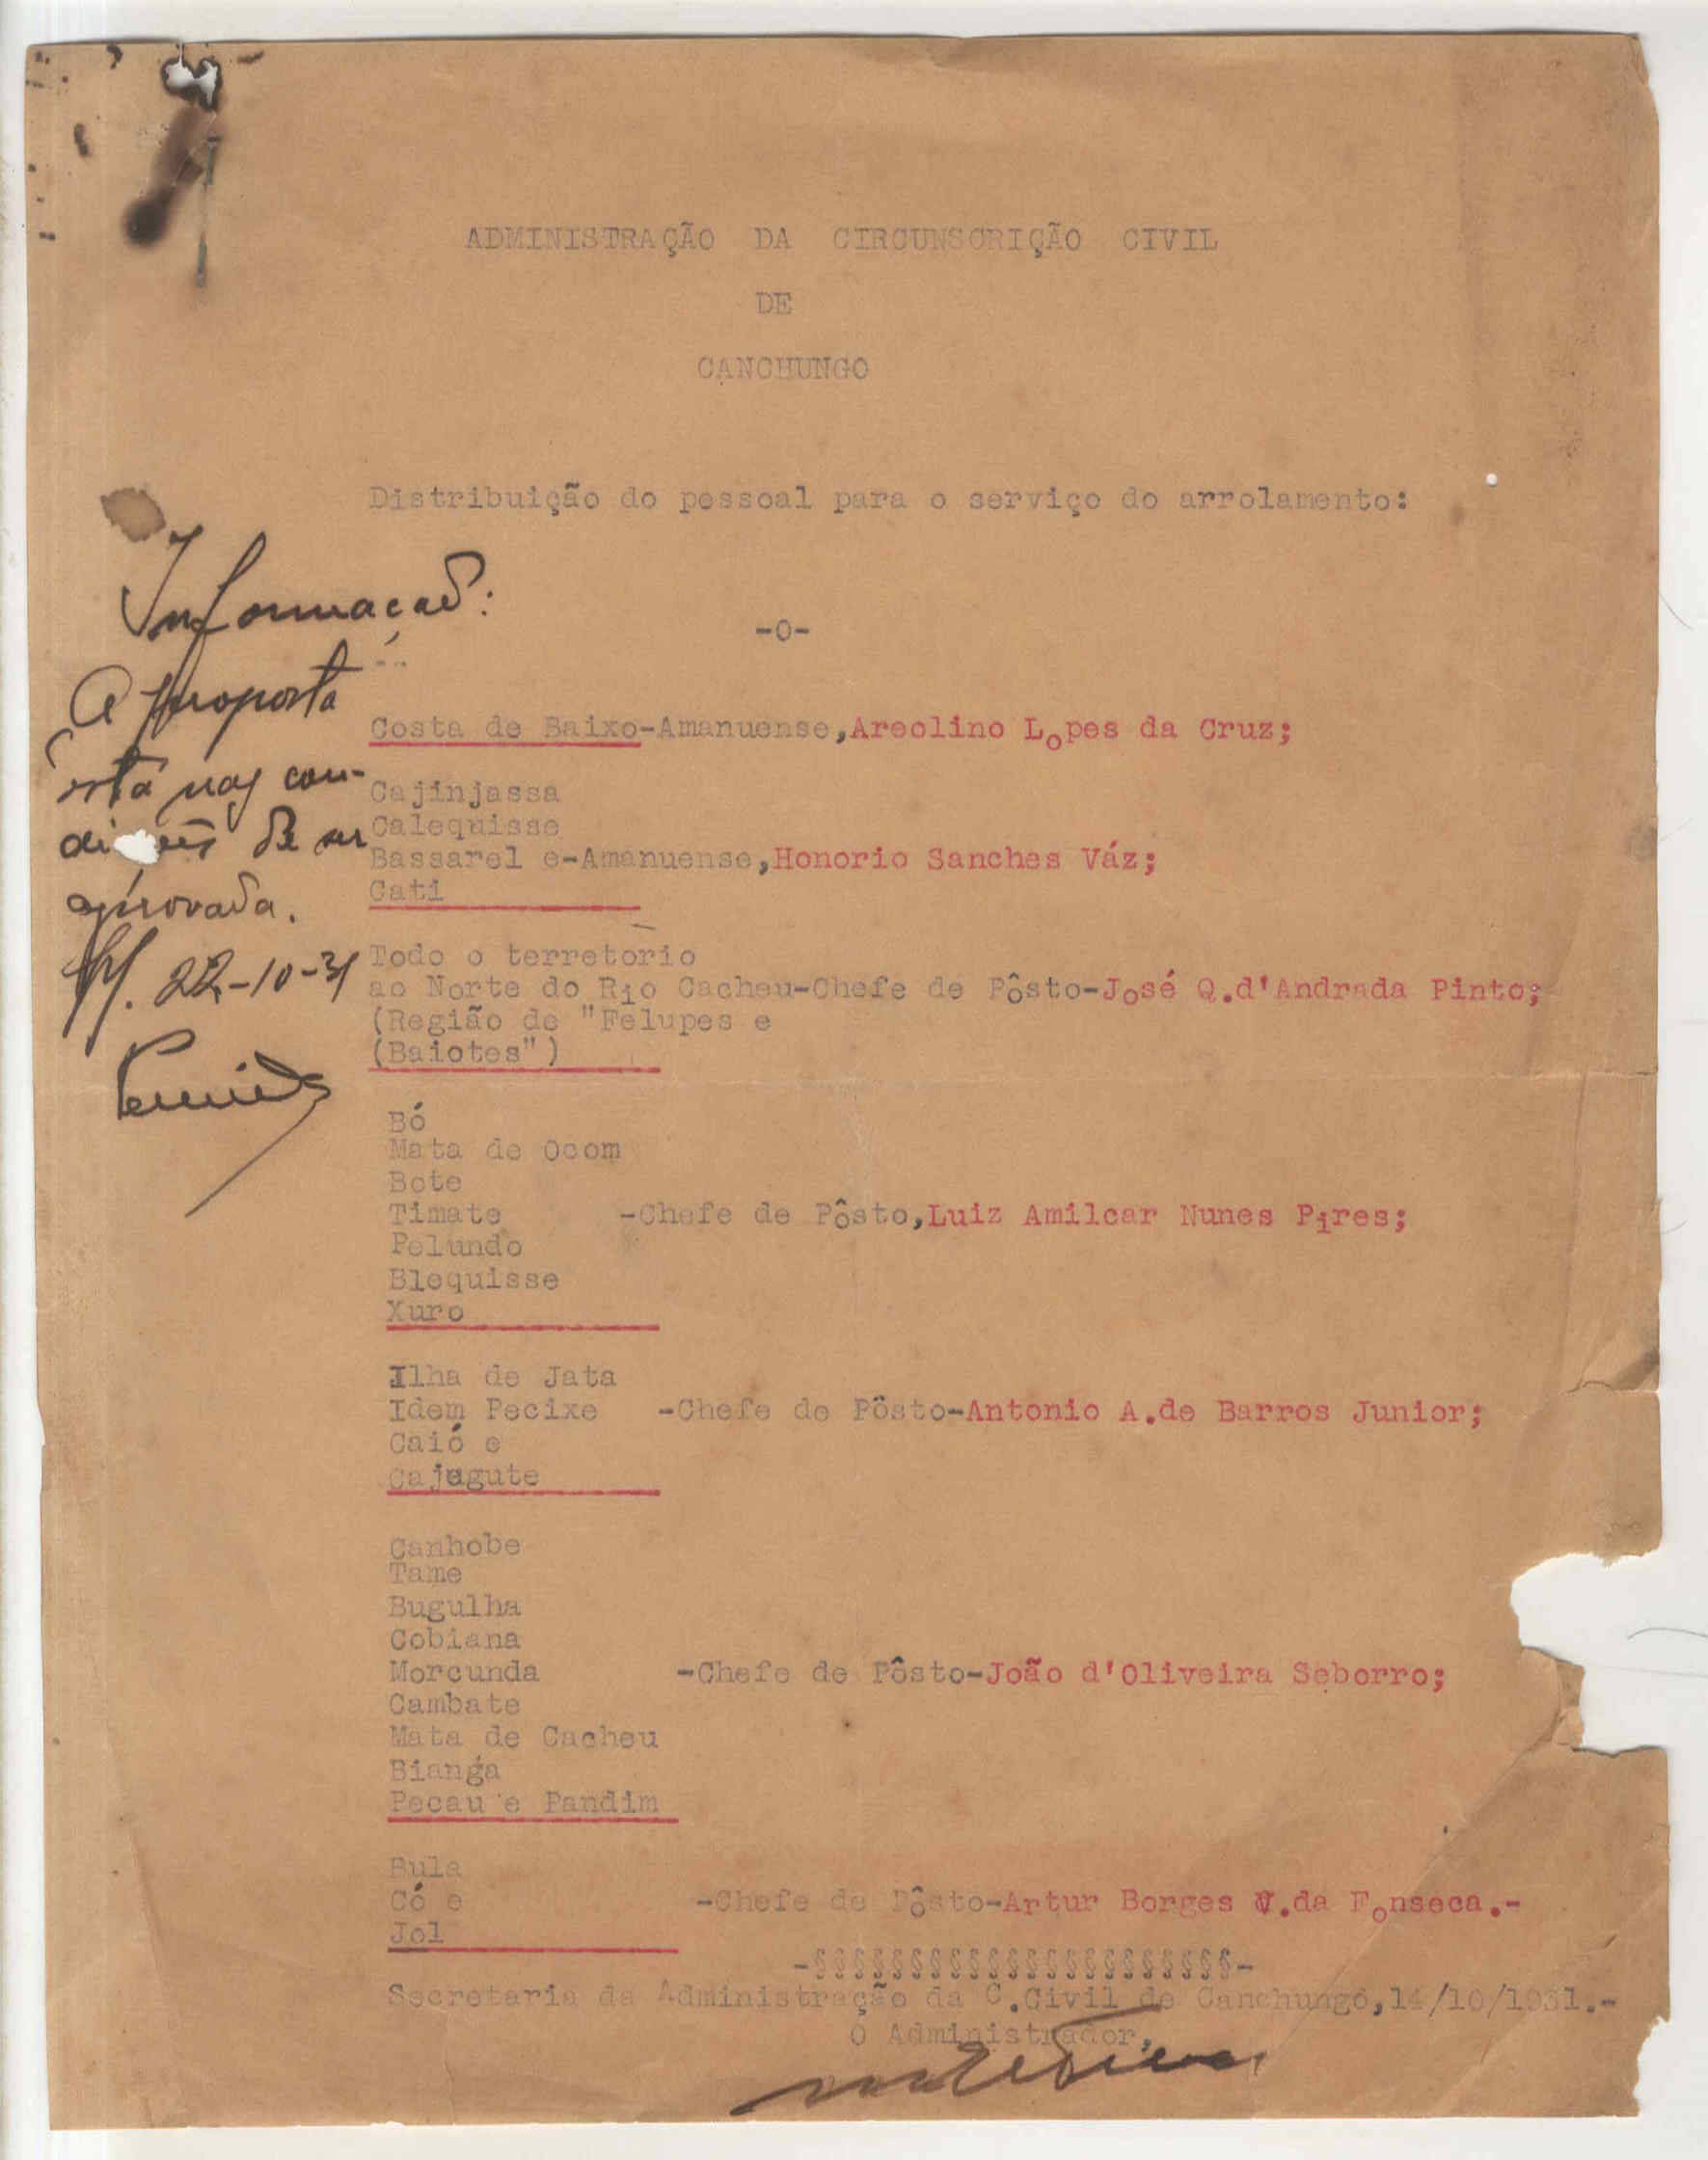 ADMINISTRAÇÃO DA CIRCUNSCRIÇÃO CIVIL
DE
CANCHUNGO
Distribuição do pessoal para o serviço do arrolamento:
-o-
Informação:
A proposta
está nas con-
di ões de ser
aprovada.
22-10-31
Costa de Baixo-Amanuense,Areolino Lopes da Cruz;
Cajinjassa
Calequisse
Bassarel e-Amanuense,Honorio Sanches Váz;
Cati
Todo o terretorio
ao Norte do Rio Cacheu-Chefe de Pôsto-José Q.d'Andrada Pinto;
(Região de "Felupes e
(Baiotes")
Bó
Mata de Ocom
Bote
Timate -Chefe de Pôsto,Luiz Amilcar Nunes Pires;
Pelundo
Blequisse
Xuro
Ilha de Jata
Idem Pecixe -Chefe de Pôsto-Antonio A.de Barros Junior;
Caió e
Cajugute
Canhobe
Tame
Bugulha
Cobiana
Morcunda -Chefe de Pôsto-João d'Oliveira Seborro;
Cambate
Mata de Cacheu
Bianga
Pecau e Pandim
Bula
Có e -Chefe de Pôsto-Artur Borges V.da Fonseca.-
Jol
-§§§§§§§§§§§§§§§§§§§§§§-
Secretaria da Administração da C.Civil de Canchungo,14/10/1931.-
O Administrador,